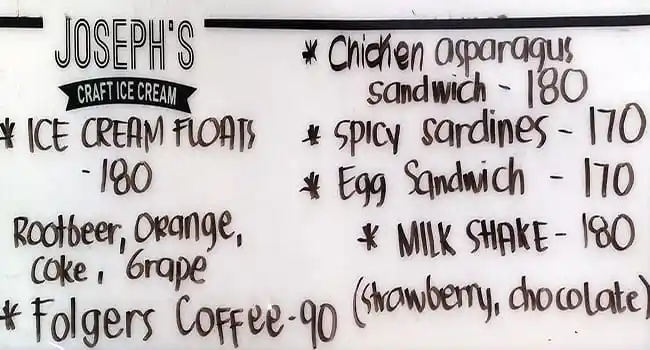 JOSEPH'S
CRAFT ICE CREAM
* ICE CREAM FLOATS
- 180
Rootbeer, Orange,
Coke, Grape
* Folgers Coffee - 90
* Chicken asparagus
sandwich - 180
* Spicy Sardines - 170
* Egg Sandwich - 170
* MILK SHAKE - 180
(Strawberry, chocolate)